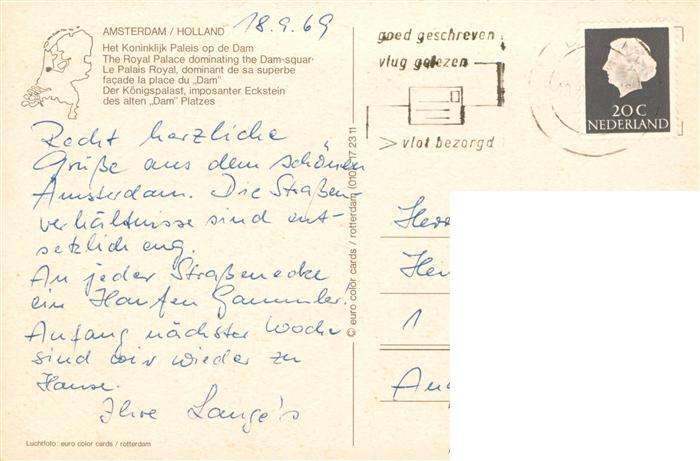 AMSTERDAM / HOLLAND
18.9.69
Het Koninklijk Paleis op de Dam
The Royal Palace dominating the Dam-squar
Le Palais Royal, dominant de sa superbe
façade la place du „Dam"
Der Königspalast, imposanter Eckstein
des alten „Dam" Platzes
Recht herzliche
Grüße aus dem schönen
Amsterdam. Die Straßen-
verhältnisse sind ent-
setzlich eng.
An jeder Straßenecke
ein Haufen Gammler!
Anfang nächster Woche
sind wir wieder zu
Hause.
Ihre Lange's
Luchtfoto: euro color cards / rotterdam
© euro color cards / rotterdam (010) 17 23 11
goed geschreven
vlug gelezen
vlot bezorgd
20 C
NEDERLAND
Herr
Her
1